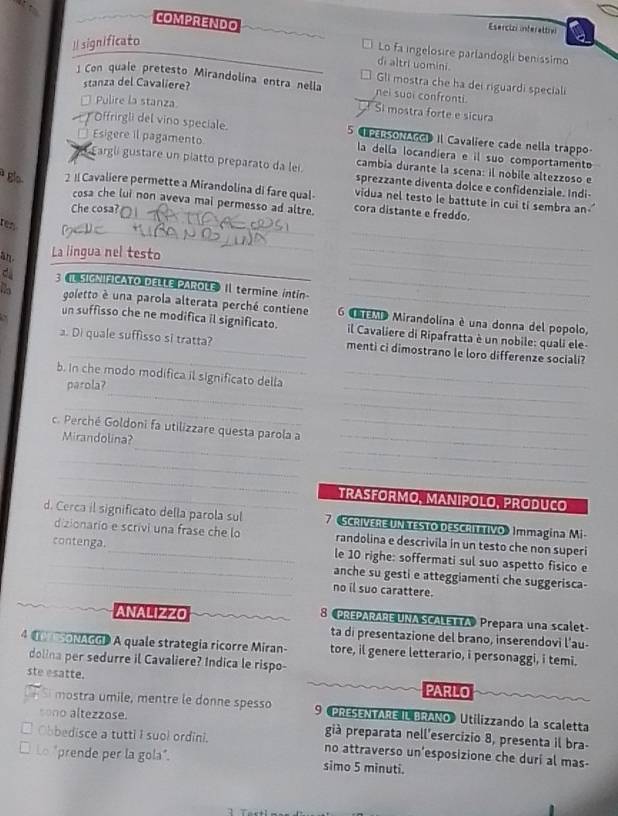 COMPRENDO
Esercizi interattivi
Il significato
1 Con quale pretesto Mirandolina entra nella
stanza del Cavaliere?
Pulire la stanza.
Offrirgli del vino speciale.
Esigere il pagamento.
Fargli gustare un piatto preparato da lei.
2 Il Cavaliere permette a Mirandolina di fare qual-
cosa che lui non aveva mai permesso ad altre.
Che cosa? DI
MIRANDOLINA
La lingua nel testo
3 IL SIGNIFICATO DELLE PAROLE Il termine intin-
goletto è una parola alterata perché contiene
un suffisso che ne modifica il significato.
a. Di quale suffisso si tratta?
b. In che modo modifica il significato della
parola?
c. Perché Goldoni fa utilizzare questa parola a
Mirandolina?
d. Cerca il significato della parola sul
dizionario e scrivi una frase che lo
contenga.
ANALIZZO
4 I PERSONAGGI A quale strategia ricorre Miran-
dolina per sedurre il Cavaliere? Indica le rispo-
ste esatte.
Si mostra umile, mentre le donne spesso
sono altezzose.
Obbedisce a tutti i suoi ordini.
Lo "prende per la gola".
Lo fa ingelosire parlandogli benissimo
di altri uomini.
Gli mostra che ha dei riguardi speciali
nei suoi confronti.
Si mostra forte e sicura
5 I PERSONAGGI Il Cavaliere cade nella trappo-
la della locandiera e il suo comportamento
cambia durante la scena: il nobile altezzoso e
sprezzante diventa dolce e confidenziale. Indi-
vidua nel testo le battute in cui ti sembra an-
cora distante e freddo.
6 I TEMI Mirandolina è una donna del popolo,
il Cavaliere di Ripafratta è un nobile: quali ele-
menti ci dimostrano le loro differenze sociali?
TRASFORMO, MANIPOLO, PRODUCO
7 SCRIVERE UN TESTO DESCRITTIVO Immagina Mi-
randolina e descrivila in un testo che non superi
le 10 righe: soffermati sul suo aspetto fisico e
anche su gesti e atteggiamenti che suggerisca-
no il suo carattere.
8 PREPARARE UNA SCALETTA Prepara una scalet-
ta di presentazione del brano, inserendovi l'au-
tore, il genere letterario, i personaggi, i temi.
PARLO
9 PRESENTARE IL BRANO Utilizzando la scaletta
già preparata nell'esercizio 8, presenta il bra-
no attraverso un'esposizione che duri al mas-
simo 5 minuti.